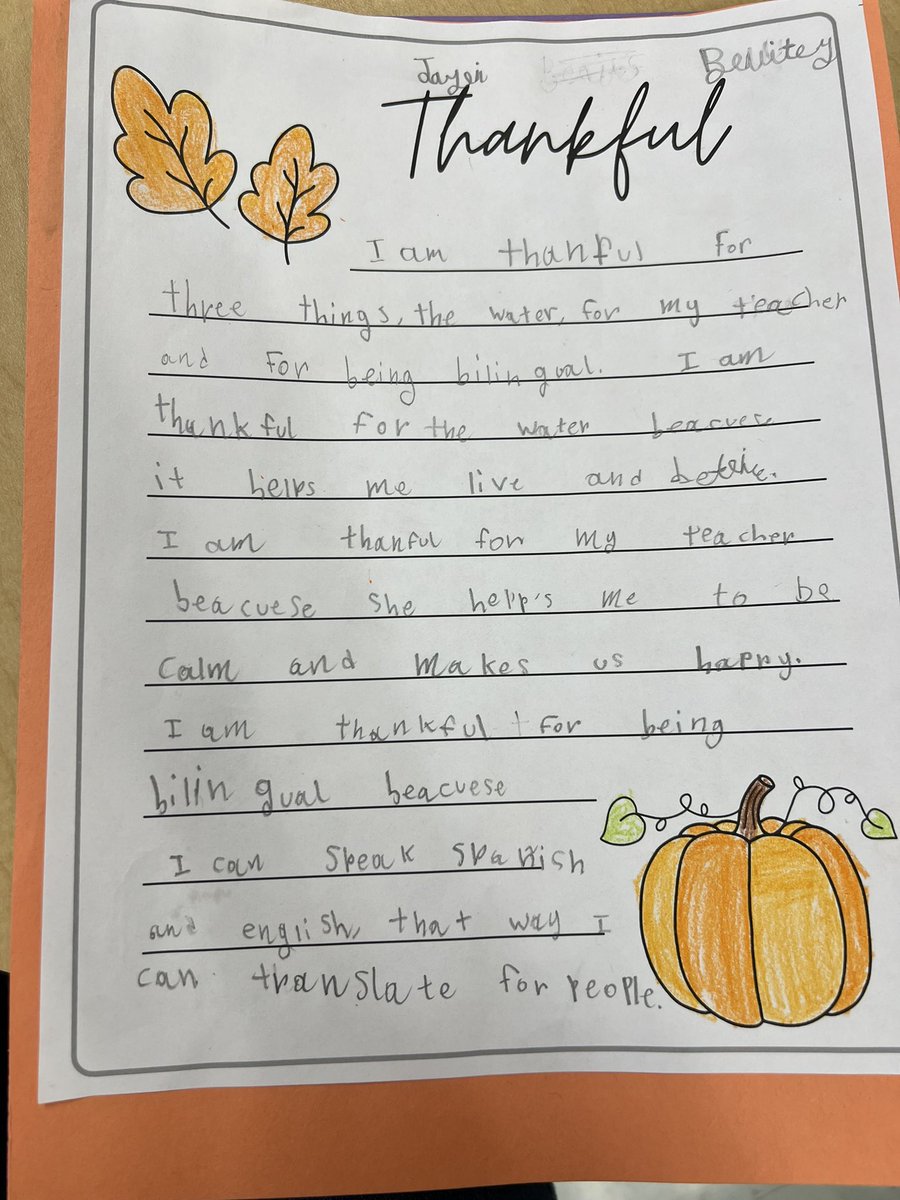 Jayen Bevitez
Thankful
I am thankful for
three things, the water, for my teacher
and for being bilingual. I am
thankful for the water beacuese
it helps me live and
I am thanful for my teacher
beacuese she help's me to be
calm and makes us happy.
I am thankful for being
bilingual beacuese
I can speak spanish
and english, that way I
can translate for people.